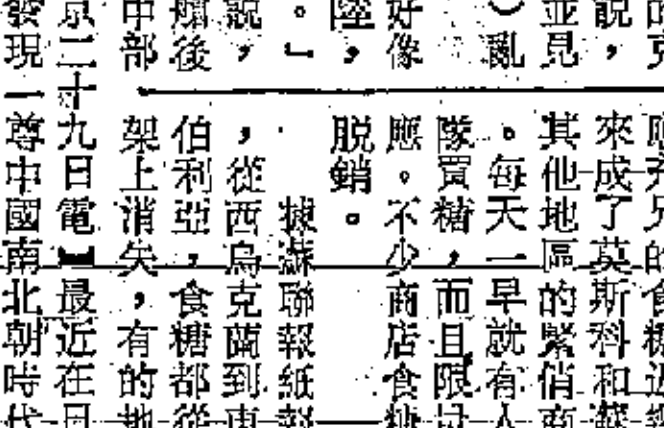 說，
並見
）亂
好像
陸，
。」
說，
後
中部
來成了莫斯科和蘇
其他地區的緊俏商
。每天一早就有人
隊買糖，而且限量
應。不少商店食糖
脫銷。
據蘇聯報紙報
，從西烏克蘭到東
伯利亞，食糖都從
架上消失，有的地
京二十九日電】最近在日
發現一尊中國南北朝時代